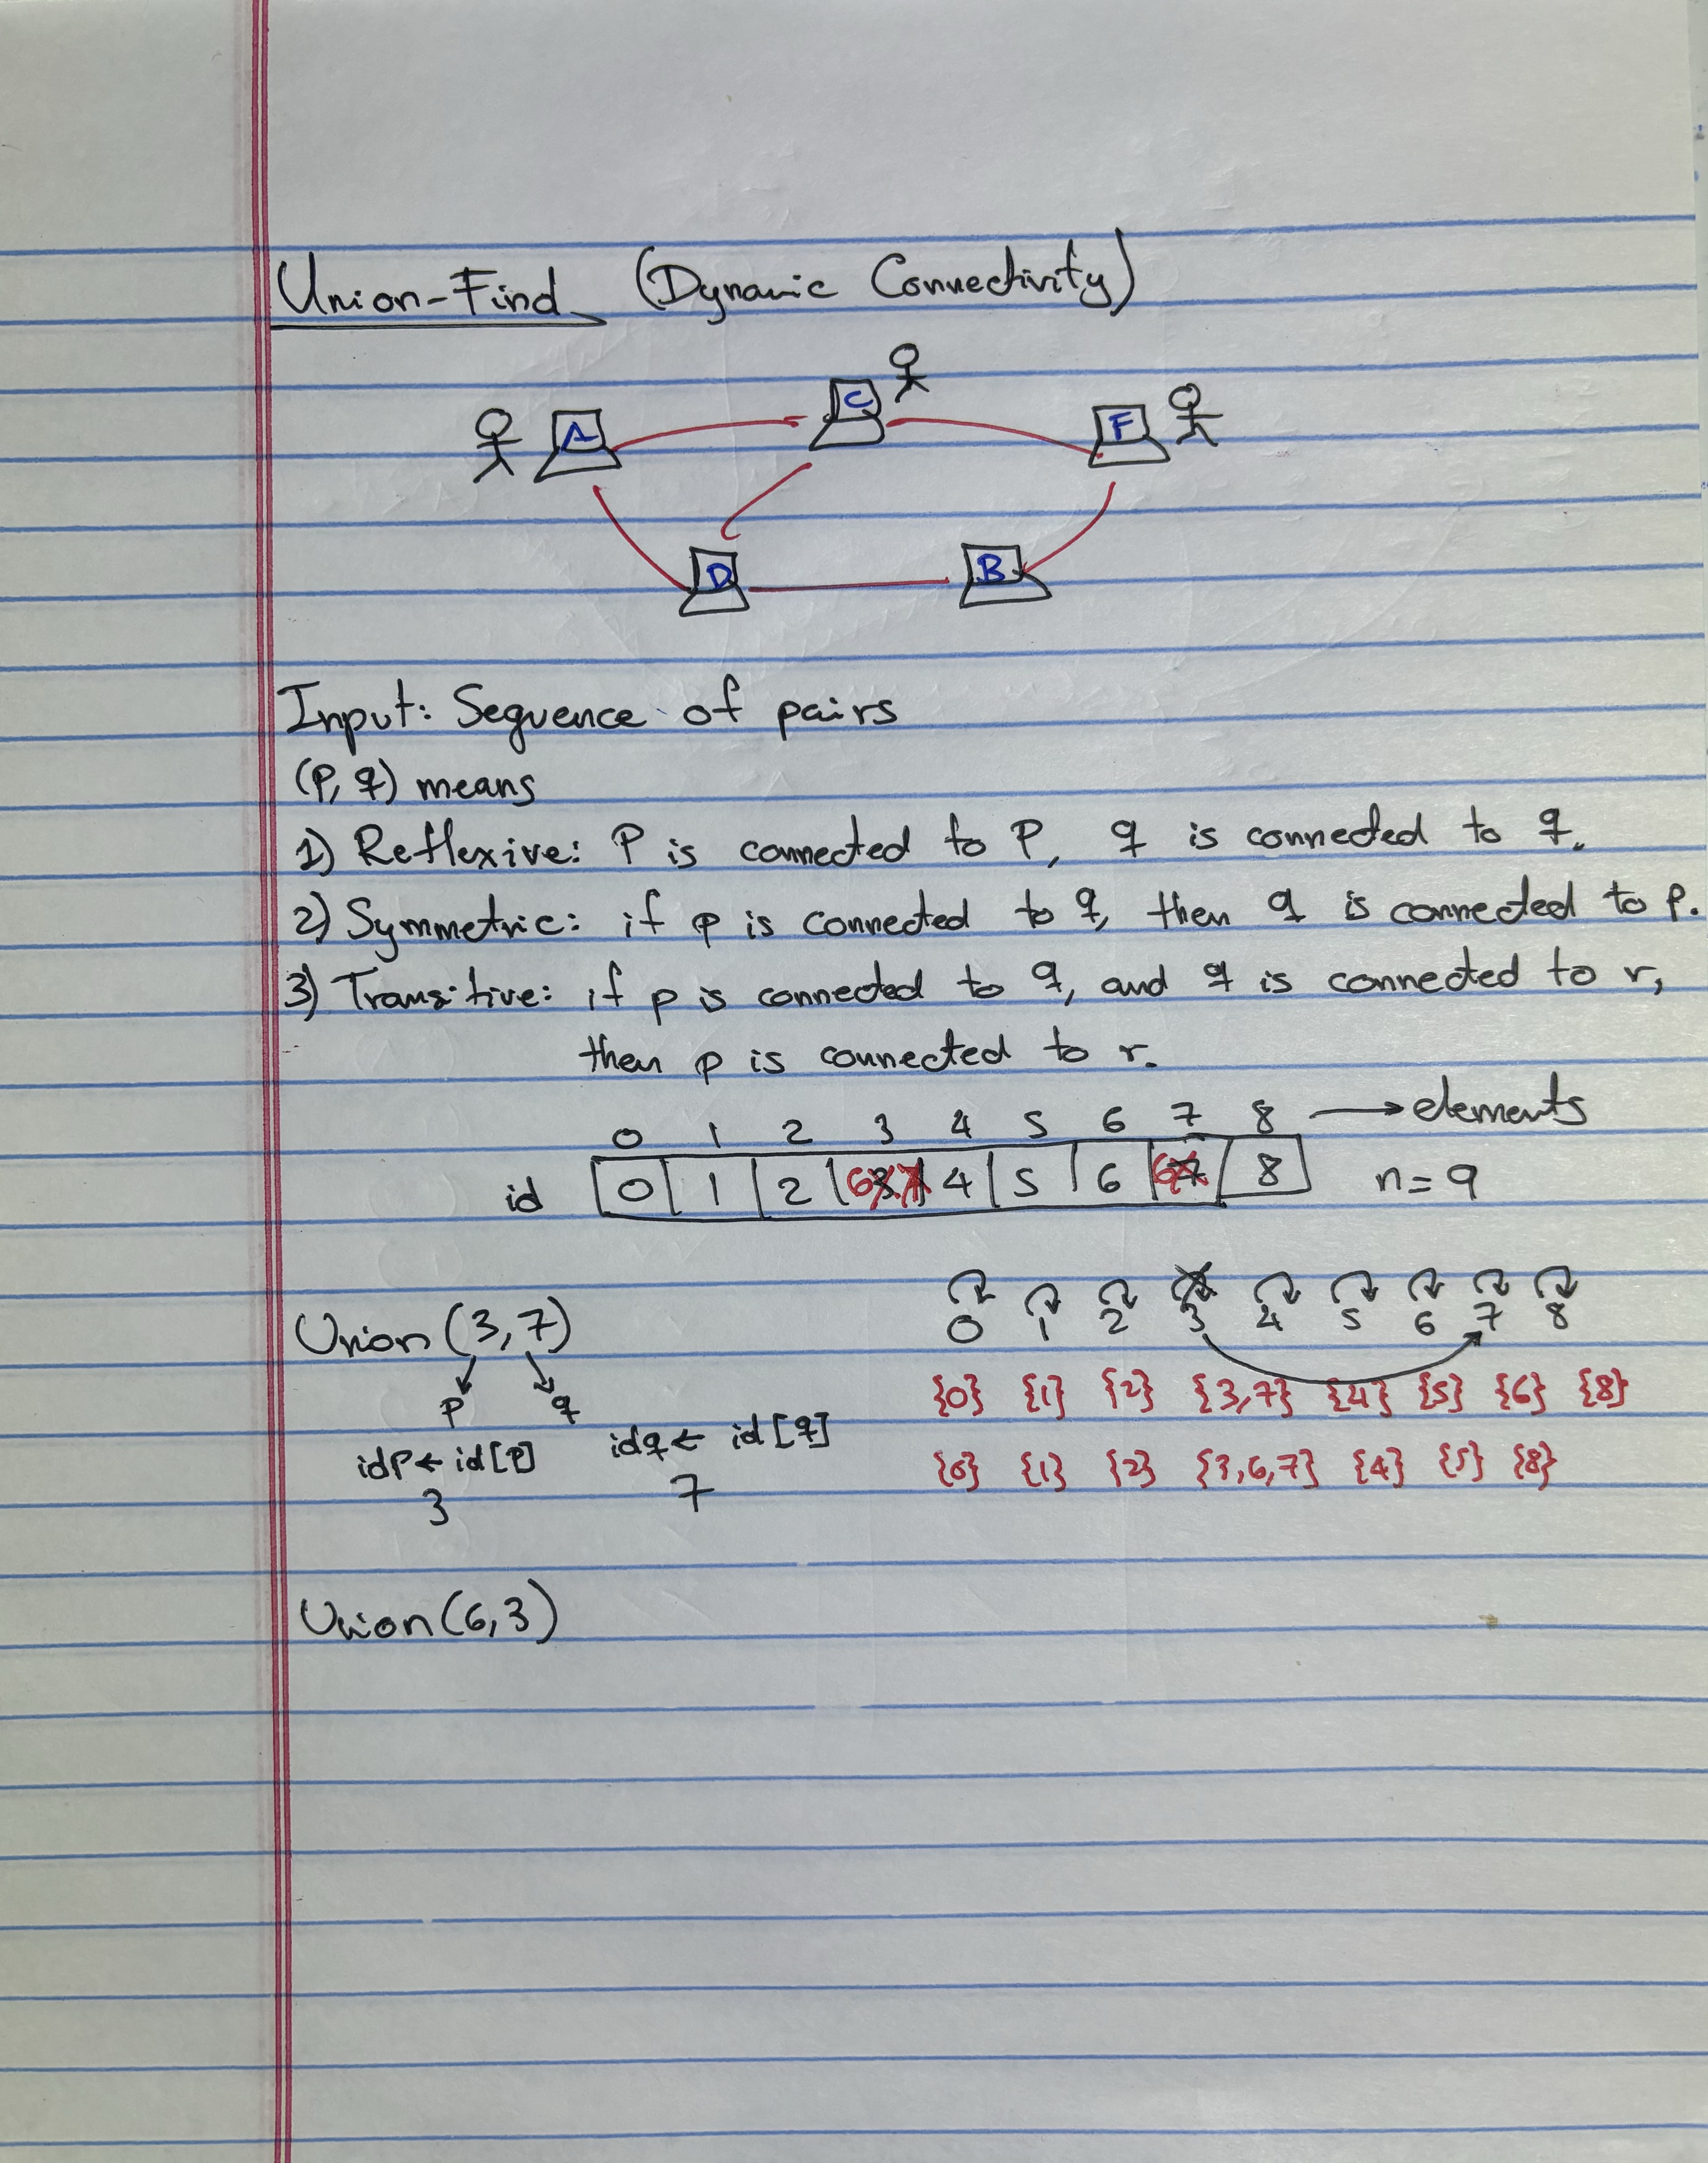 Union-Find (Dynamic Connectivity)
A C F
D B
Input: Sequence of pairs
(p, q) means
1) Reflexive: P is connected to P, q is connected to q.
2) Symmetric: if p is connected to q, then q is connected to p.
3) Transitive: if p is connected to q, and q is connected to r,
then p is connected to r.
0 1 2 3 4 5 6 7 8 → elements
id 0 1 2 6 3 7 4 5 6 6 7 8 n=9
Union (3,7) 0 1 2 3 4 5 6 7 8
p q {0} {1} {2} {3,7} {4} {5} {6} {8}
idp ← id[p] idq ← id[q] {0} {1} {2} {3,6,7} {4} {5} {8}
3 7
Union(6,3)